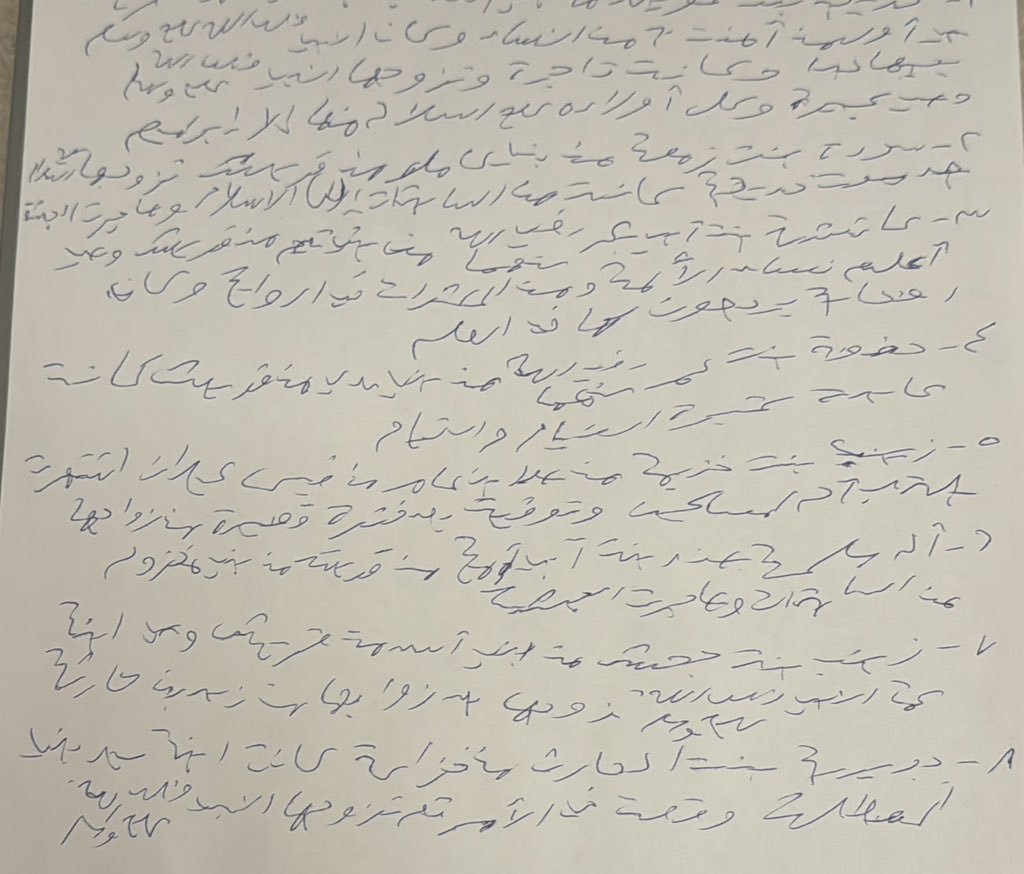 هي أول من آمنت من النساء وكان النبي صلى الله عليه وسلم
يحبها وكانت تاجرة وتزوجها النبي صلى الله عليه وسلم
وهي كبيرة وكل أولاده عليه السلام منها إلا إبراهيم
٢- سودة بنت زمعة من بني عامر من قريش تزوجها
بعد موت خديجة كانت من السابقات إلى الإسلام وهاجرت الحبشة
٣- عائشة بنت أبي بكر رضي الله عنهما من بني تيم من قريش وهي
أعلم نساء الأمة ومن المكثرات في الرواية وكان
الصحابة يرجعون لها في العلم
٤- حفصة بنت عمر رضي الله عنهما من بني عدي من قريش كانت
عابدة كثيرة الصيام والقيام
٥- زينب بنت خزيمة من بني عامر من قيس عيلان اشتهرت
بلقب أم المساكين وتوفيت بعد فترة قصيرة من زواجها
٦- أم سلمة هند بنت أبي أمية من قريش من بني مخزوم
من السابقات وهاجرت الحبشة
٧- زينب بنت جحش من بني أسد من وهي ابنة
عمة النبي صلى الله عليه وسلم زوجها زيد بن حارثة
٨- جويرية بنت الحارث من خزاعة كانت ابنة سيد بني
المصطلق وقعت في الأسر ثم تزوجها النبي صلى الله عليه وسلم